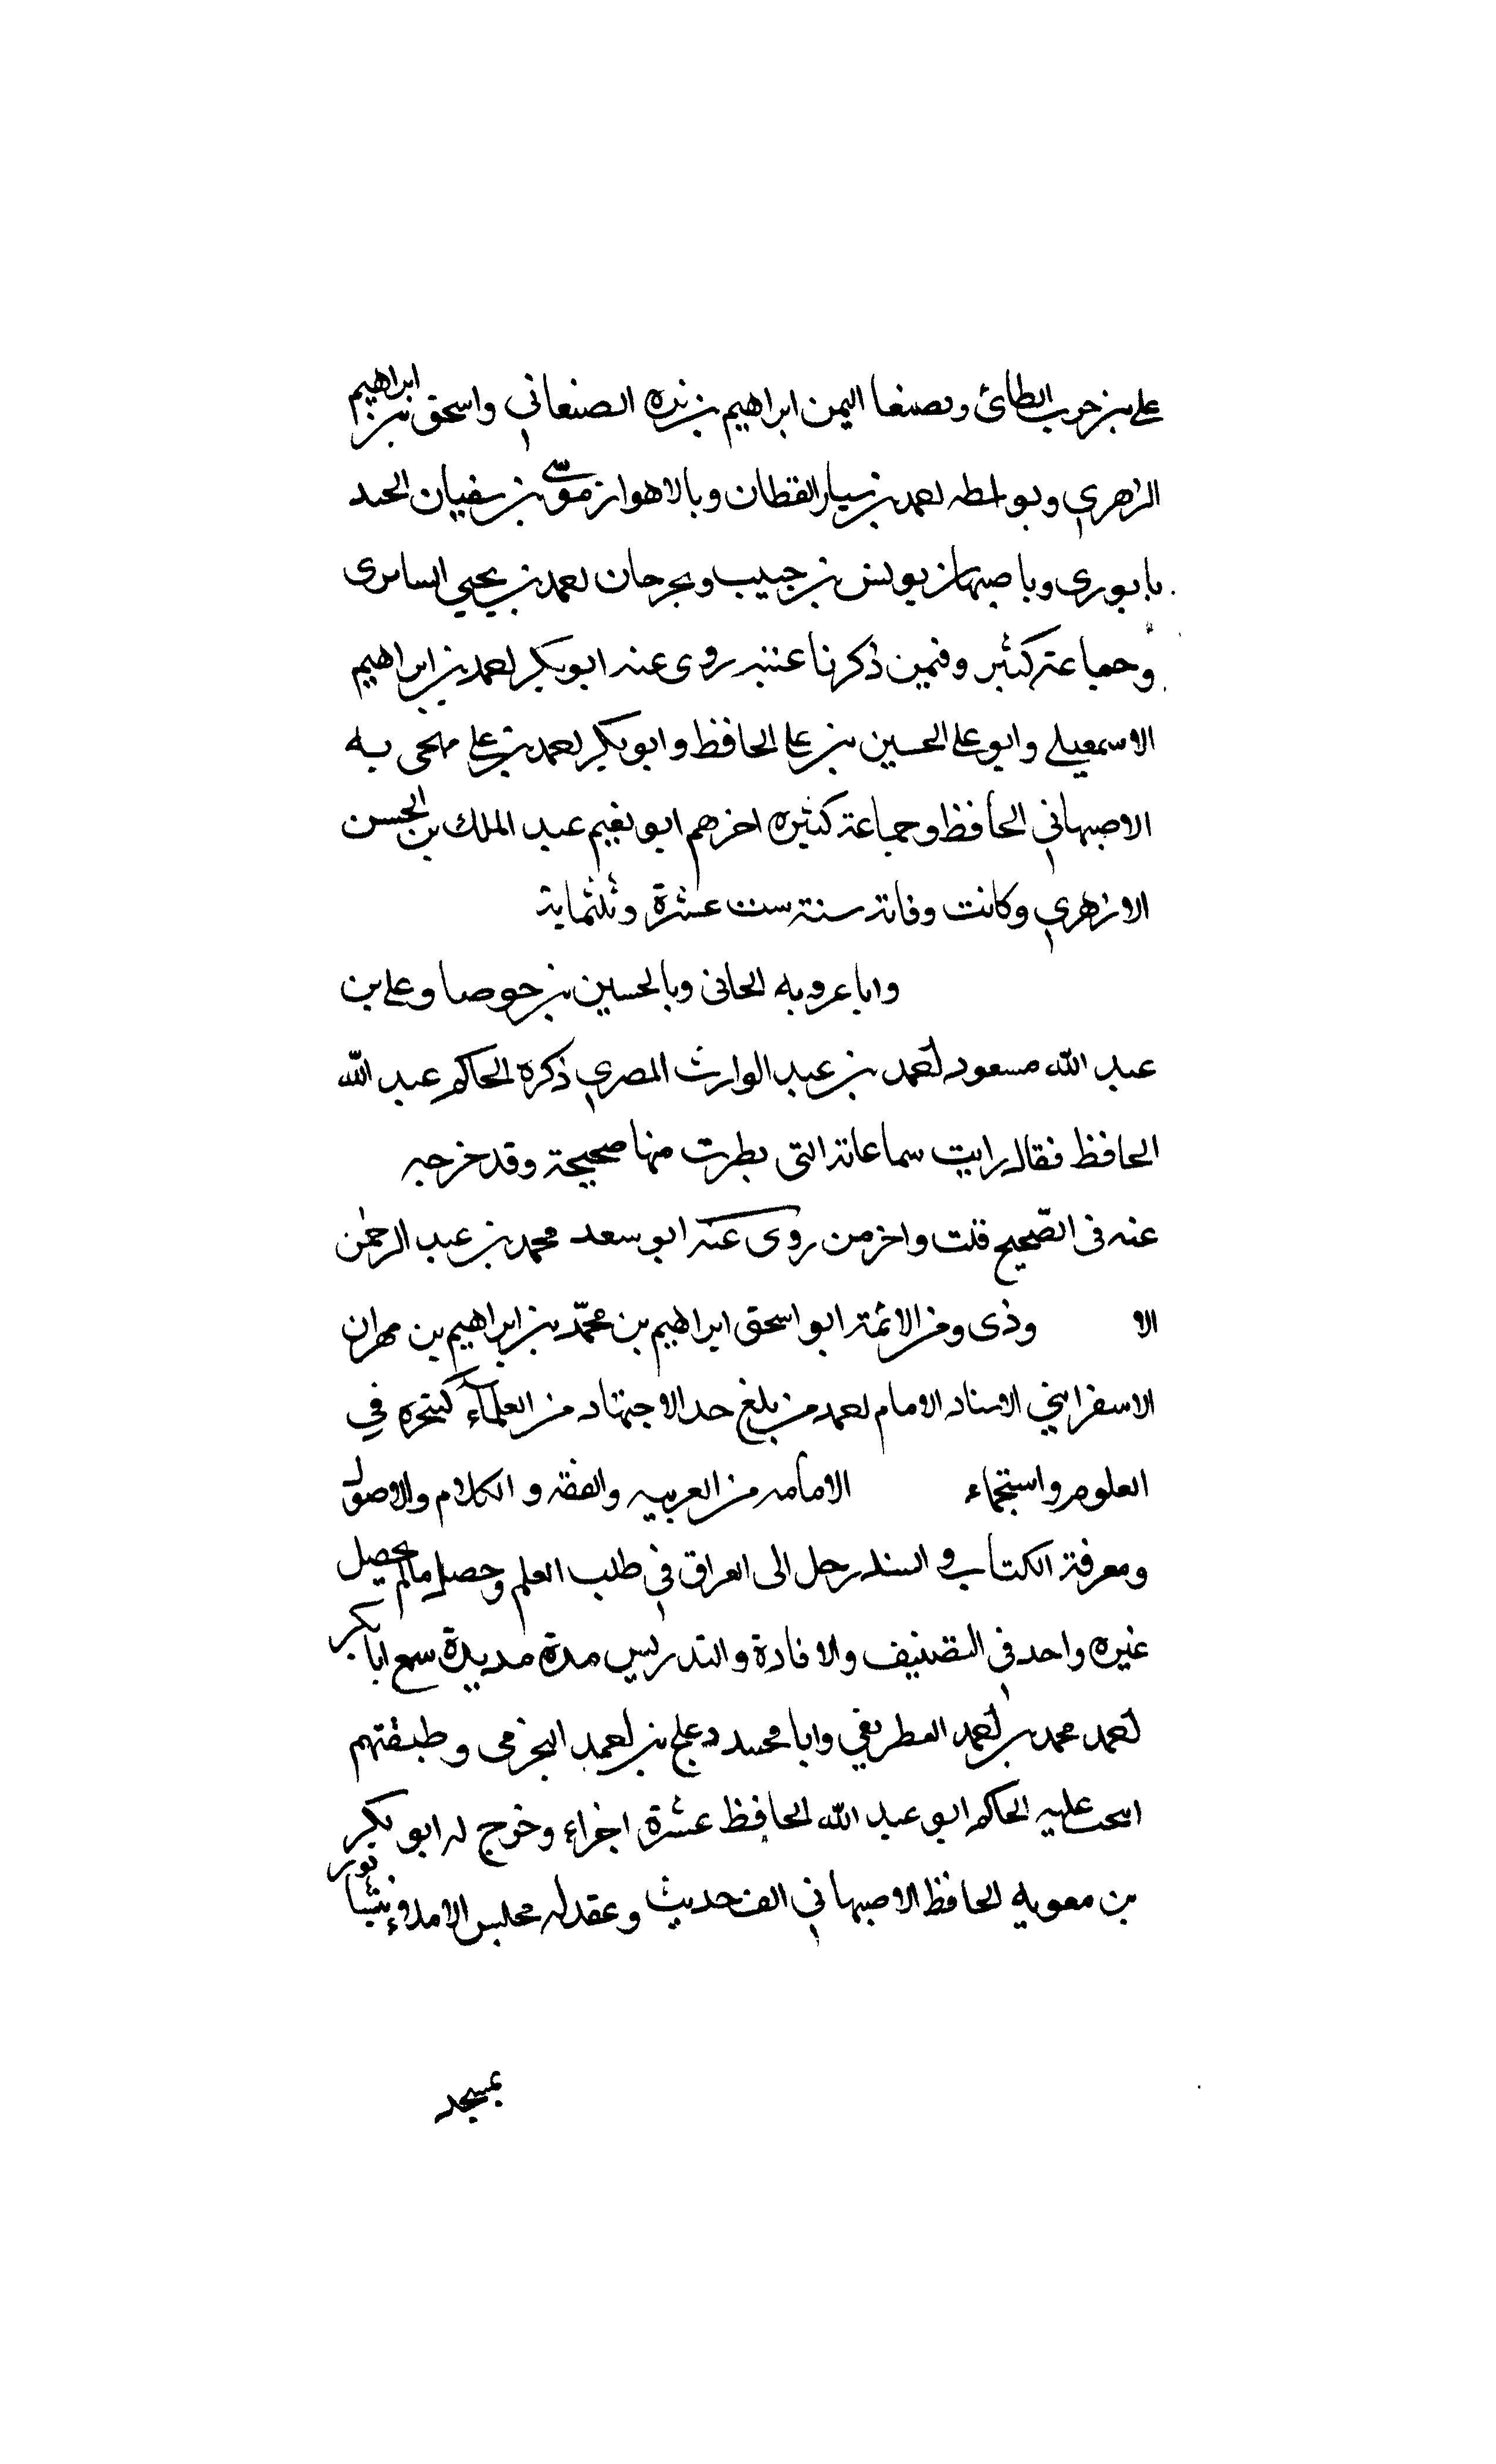 على بن حرب الطائ وبصنعا اليمن ابراهيم بن بره الصنعاني واسحق بن ابراهيم
الزهري وبواسطه احمد بن سيار القطان وبالاهواز موسى بن سفيان الحد
يابورى وباصبهان يونس بن حبيب وبجرجان احمد بن يحيي السامرى
وجماعة كثير وفمين ذكرنا عنيه روى عنه ابو بكر احمد بن ابراهيم
الاسمعيلي وابو على الحسين بن على الحافظ وابو بكر احمد بن على منجويه
الاصبهاني الحافظ وجماعة كثيره اخرهم ابو نعيم عبد الملك بن الحسن
الازهري وكانت وفاته سنة ست عشرة وثلثماية
وابا عروبه الحانى وبالحسين بن جوصا وعلى بن
عبد الله مسعود احمد بن عبد الوارث المصري ذكره الحاكم عبد الله
الحافظ فقال رايت سماعاته التى نظرت منها صحيحة وقد خرجه
عنه فى الصّحيح قلت واخر من روى عنه ابو سعد محمد بن عبد الرحمٰن
الا وذى ومن الائمة ابو اسحق ابراهيم بن محمّد بن ابراهيم بن مهران
الاسفرايني الاستاد الامام احمد من بلغ حد الاجتهاد من العلماء لتبحره في
العلوم واستجماء الامامه من العربيه والفقه و الكلام والاصول
ومعرفة الكتاب و السنه رحل الى العراق في طلب العلم وحصل مالم يحصل
غيره واحد في التصنيف والافادة والتدريس مدة مديدة سمع ابا بكر
احمد محمد بن احمد الغطريفي وابا محمد دعلج بن احمد السجزى وطبقتهم
انتخب عليه الحاكم ابو عبد الله الحافظ عشرة اجزاء وخرج له ابو بكر
بن معويه الحافظ الاصبهاني الف حديث وعقد له مجلس الاملاء بنيسابور
بمسجد